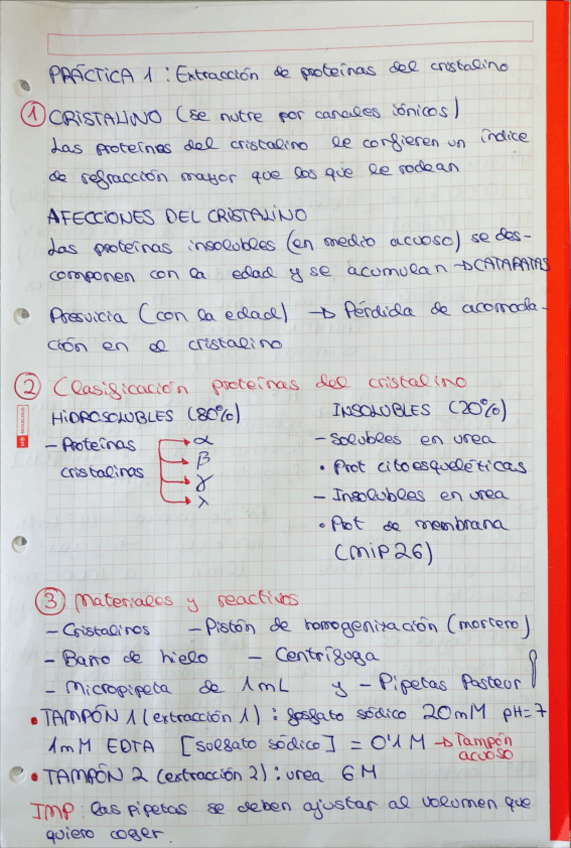 PRÁCTICA 1: Extracción de proteínas del cristalino
① CRISTALINO (se nutre por canales iónicos)
Las proteínas del cristalino le confieren un índice
de refracción mayor que los que le rodean
AFECCIONES DEL CRISTALINO
Las proteínas insolubles (en medio acuoso) se des-
componen con la edad y se acumulan → CATARATAS
Presvicia (con la edad) → Pérdida de acomoda-
ción en el cristalino
② Clasificación proteínas del cristalino
HIDROSOLUBLES (80%)
- Proteínas
cristalinas
→ α
→ β
→ γ
→ λ
INSOLUBLES (20%)
- Solubles en urea
• Prot citoesqueléticas
- Insolubles en urea
• Prot de membrana
(MIP26)
③ Materiales y reactivos
- Cristalinos - Pistón de homogenización (mortero)
- Baño de hielo - Centrífuga
- Micropipeta de 1mL y - Pipetas Pasteur
• TAMPÓN 1 (extracción 1): fosfato sódico 20mM pH=7
1mM EDTA [sulfato sódico] = 0'1M → Tampón
acuoso
• TAMPÓN 2 (extracción 2): urea 6M
IMP: las pipetas se deben ajustar al volumen que
quiero coger.